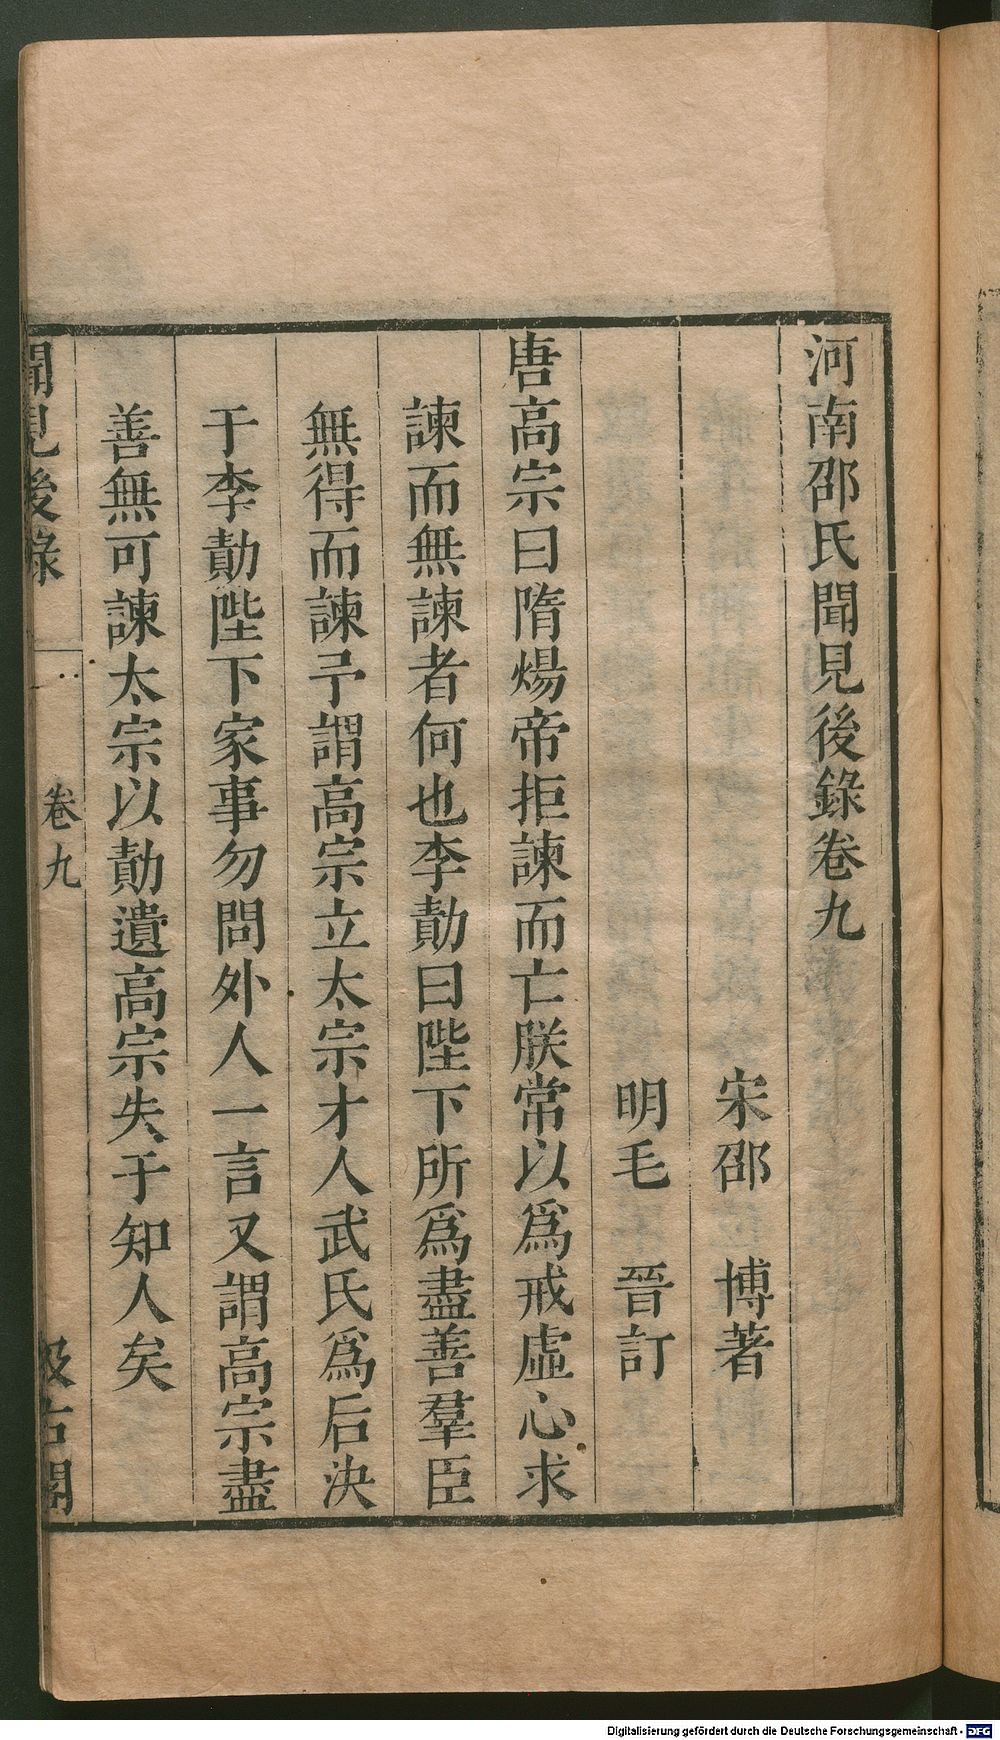 河南邵氏聞見後錄卷九
宋邵 博著
明毛 晉訂
唐高宗曰隋煬帝拒諫而亡朕常以為戒虛心求
諫而無諫者何也李勣曰陛下所為盡善羣臣
無得而諫予謂高宗立太宗才人武氏為后決
于李勣陛下家事勿問外人一言又謂高宗盡
善無可諫太宗以勣遺高宗失于知人矣
聞見後錄 卷九 汲古閣
Digitalisierung gefördert durch die Deutsche Forschungsgemeinschaft - DFG